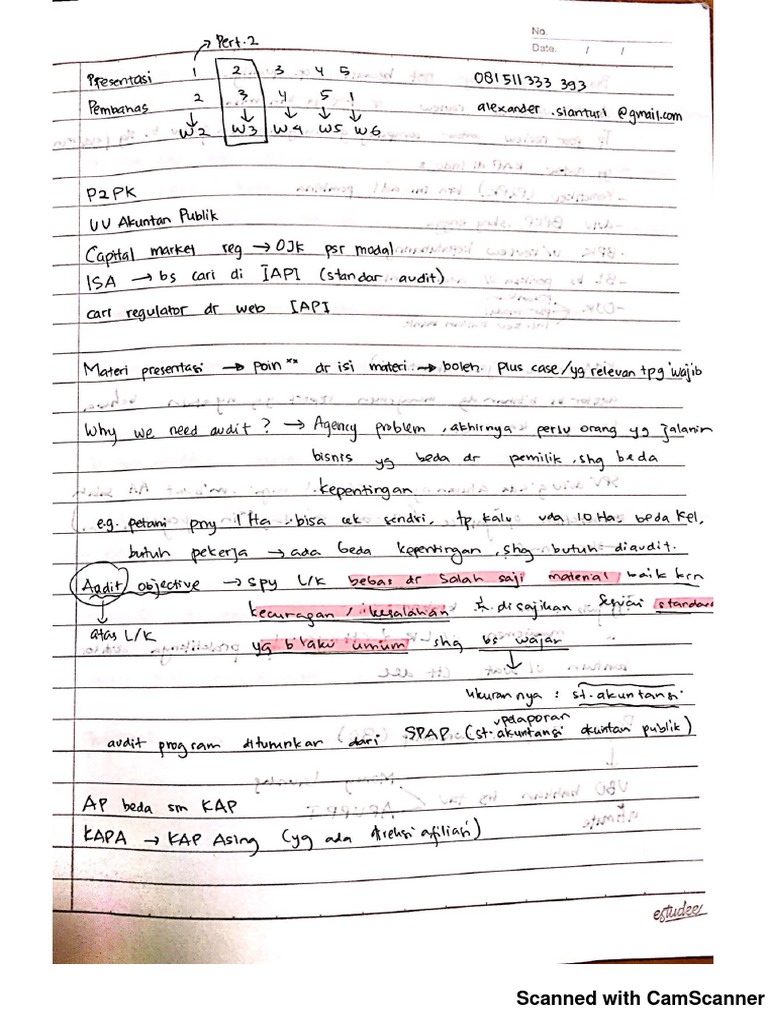 No.
Date. / /
→ Pert. 2
Presentasi 1 2 3 4 5 081511333393
Pembahas 2 3 4 5 1 alexander.sianturi@gmail.com
↓ ↓ ↓ ↓ ↓
W2 W3 W4 W5 W6
P2PK
UU Akuntan Publik
Capital market reg → OJK psr modal
ISA → bs cari di IAPI (standar audit)
cari regulator dr web IAPI
Materi presentasi → poin" dr isi materi → boleh plus case/yg relevan tpg wajib
Why we need audit? → Agency problem, akhirnya perlu orang yg jalanin
bisnis yg beda dr pemilik, shg beda
kepentingan
e.g. petani pny 1 Ha bisa cek sendri, tp kalu uda 10 Ha, beda Kel,
butuh pekerja → ada beda kepentingan, shg butuh diaudit.
Audit objective → spy L/K bebas dr salah saji material baik krn
↓ kecurangan / kesalahan & disajikan sesuai standar
atas L/K yg b'laku umum shg bs wajar
↓
ukurannya : st. akuntansi
pelaporan
audit program diturunkan dari SPAP (st. akuntansi akuntan publik)
AP beda sm KAP
KAPA → KAP Asing (yg ada afiliasi)
estudee
Scanned with CamScanner